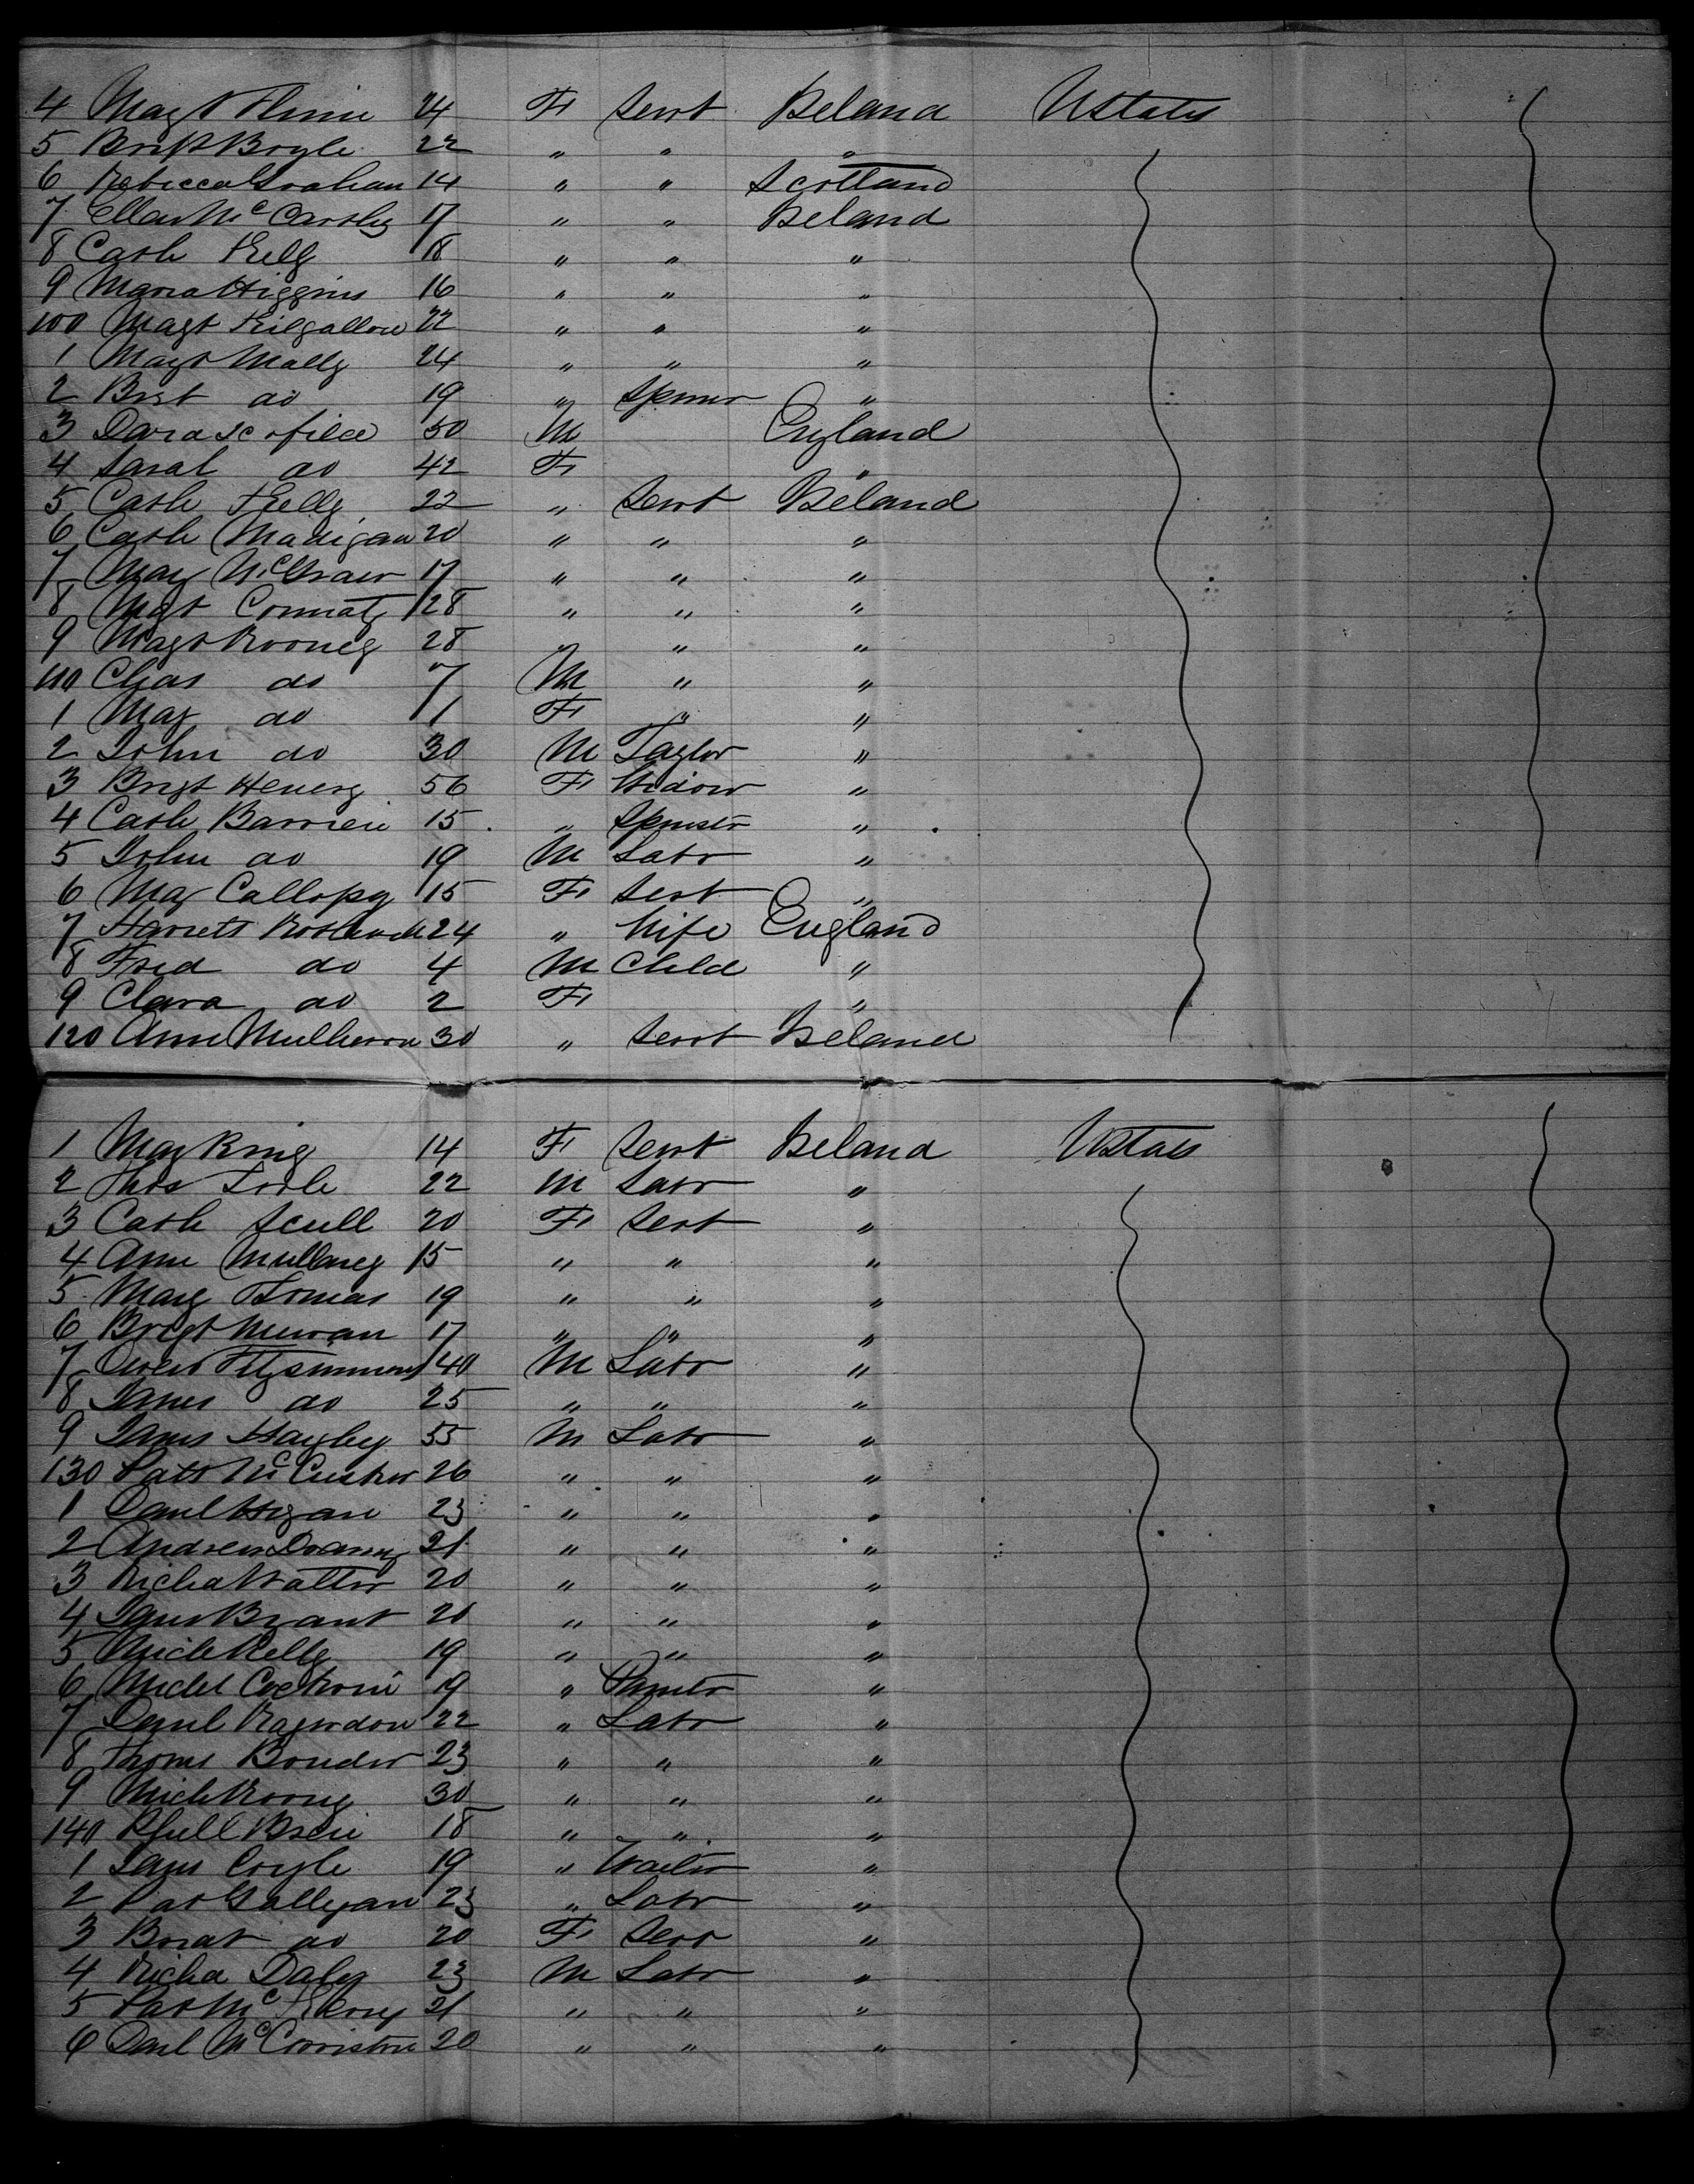 4 Magt 24 F Servt Ireland UStates
5 Bridt Boyle 22 " " "
6 Rebecca Graham 14 " " Scotland
7 Ellen McCarthy 17 " " Ireland
8 Cath Kelly 18 " " "
9 Maria Higgins 16 " " "
100 Magt Kilgallon 22 " " "
1 Magt Mally 24 " " "
2 Brit do 19 " "
3 David Scofield 50 M England
4 Sarah do 42 F "
5 Cath Kelly 22 " Servt Ireland
6 Cath Madigan 20 " " "
7 Mary McGraw 17 " " "
8 Mgt 28 " " "
9 Magt Rooney 28 " " "
110 Chas do 7 M " "
1 May do 1 F " "
2 John do 30 M Taylor "
3 Brigt Henery 56 F Widow "
4 Cath 15 " Spinster "
5 John do 19 M Labr "
6 May Callopy 15 F Servt "
7 Harriett 24 " Wife England
8 Fred do 4 M Child "
9 Clara do 2 F "
120 Anne Mulheron 30 " Servt Ireland
1 May King 14 F Servt Ireland UStates
2 Thos Toole 22 M Labr "
3 Cath Scull 20 F Servt "
4 Ann Mullaney 15 " " "
5 Mary Thomas 19 " " "
6 Brigt 17 " " "
7 Owen Fitzsimmons 40 M Labr "
8 James do 25 " " "
9 James 55 M Labr "
130 Patt McCusker 26 " " "
1 Danl Hogan 23 " " "
2 Andrew 21 " " "
3 Richd Walter 20 " " "
4 James Bryant 20 " " "
5 Mich Kelly 19 " " "
6 Michl 19 " "
7 Danl 22 " Labr "
8 Thoms 23 " " "
9 Mich Roony 30 " " "
140 18 " " "
1 James Coyle 19 " Waiter "
2 Pat Galligan 23 " Labr "
3 do 20 F Serv "
4 Richd Daly 23 M Labr "
5 Pat Mc 21 " " "
6 Danl McCorriston 20 " " "